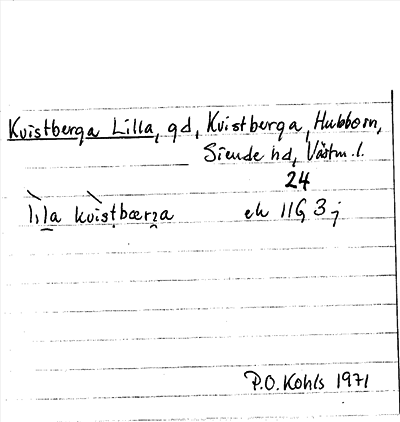 Kvistberga Lilla, gd, Kvistberga, Hubbom,
Siende hd, Västm.l.
24
lılla kvistbærga ek 11G 3j
P.O. Kohls 1971